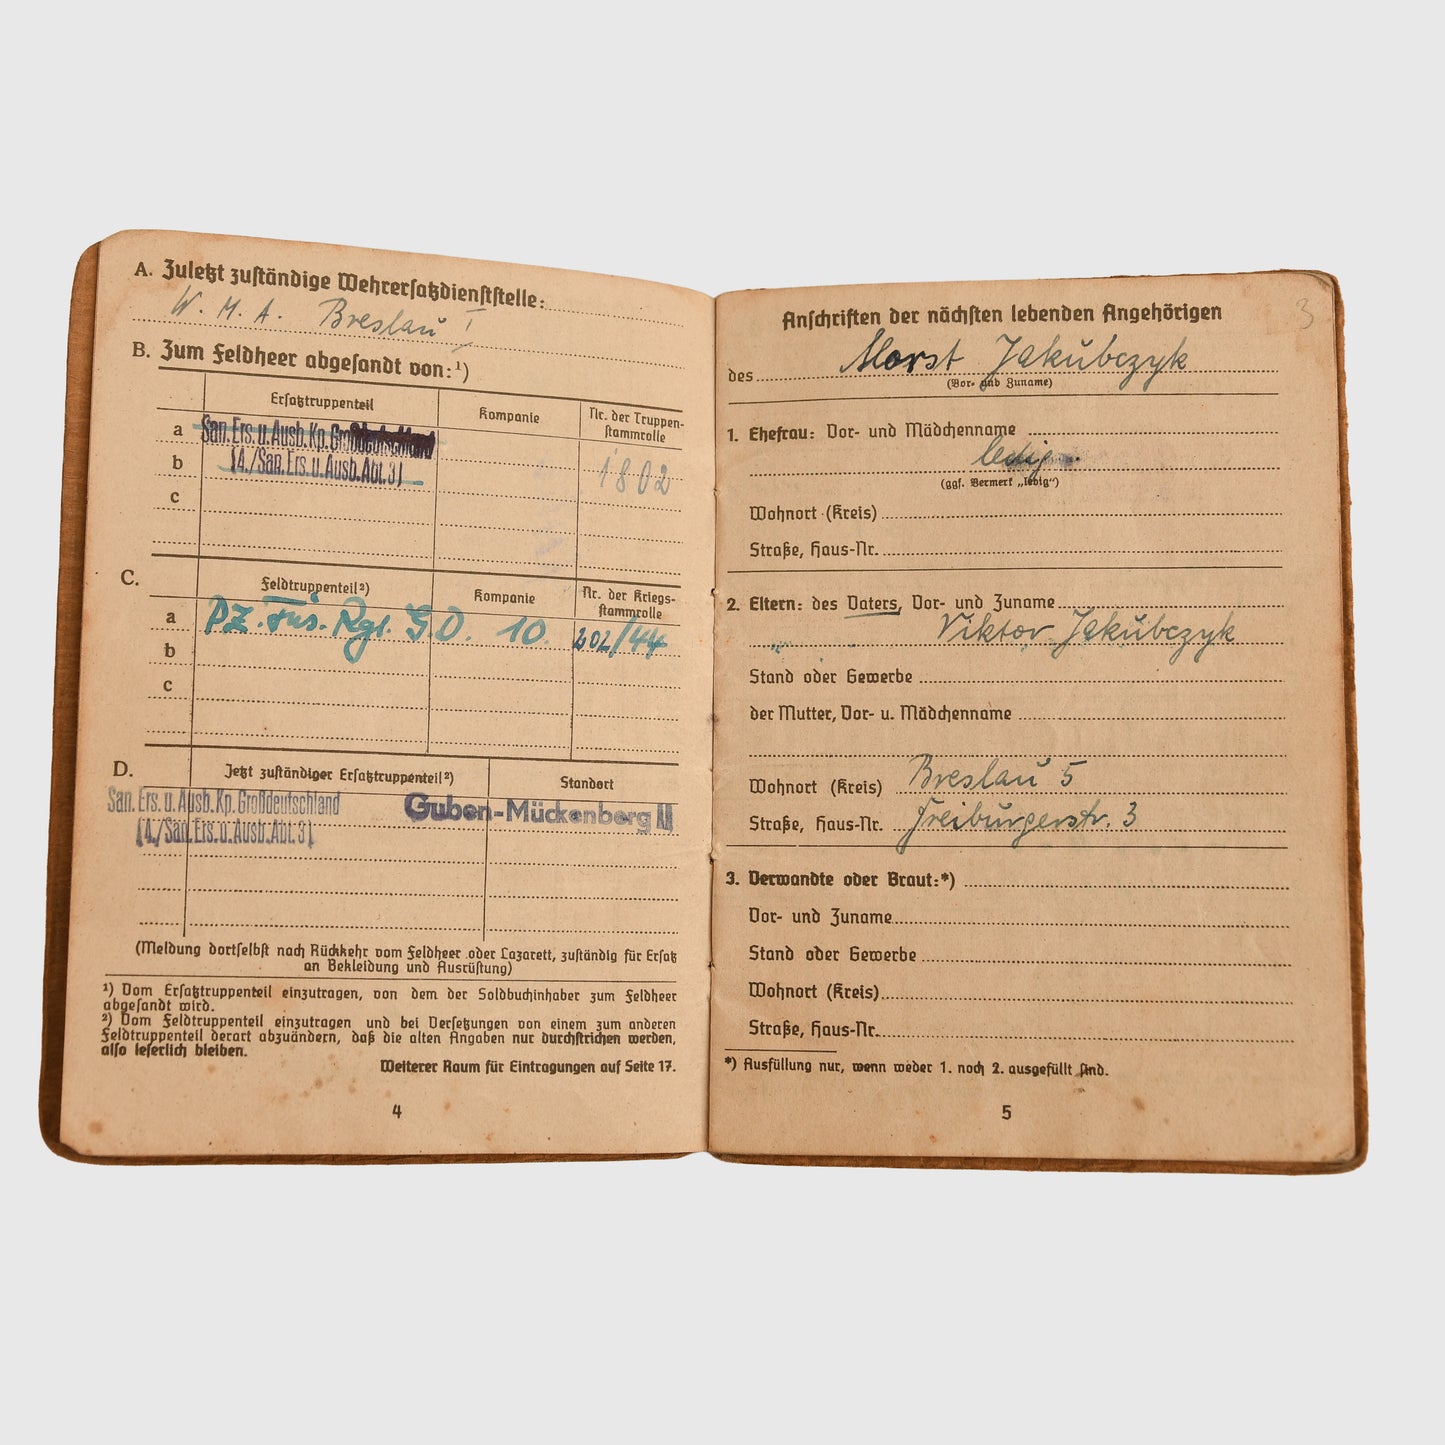 A. Zuletzt zuständige Wehrersatzdienststelle:
W. M. A. Breslau I
B. Zum Feldheer abgesandt von:¹)
Ersatztruppenteil Kompanie Nr. der Truppen-
stammrolle
a San. Ers. u. Ausb. Kp. Großdeutschland
b (4./San. Ers. u. Ausb. Abt. 3) 1802
c
C. Feldtruppenteil²) Kompanie Nr. der Kriegs-
stammrolle
a PZ. Füs. Rgt. G.D. 10. 202/44
b
c
D. Jetzt zuständiger Ersatztruppenteil²) Standort
San. Ers. u. Ausb. Kp. Großdeutschland Guben-Mückenberg II
(4./San. Ers. u. Ausb. Abt. 3)
(Meldung dortselbst nach Rückkehr vom Feldheer oder Lazarett, zuständig für Ersatz
an Bekleidung und Ausrüstung)
¹) Vom Ersatztruppenteil einzutragen, von dem der Soldbuchinhaber zum Feldheer
abgesandt wird.
²) Vom Feldtruppenteil einzutragen und bei Versetzungen von einem zum anderen
Feldtruppenteil derart abzuändern, daß die alten Angaben nur durchstrichen werden,
also leserlich bleiben.
Weiterer Raum für Eintragungen auf Seite 17.
4
3
Anschriften der nächsten lebenden Angehörigen
des Horst Jakubczyk
(Vor- und Zuname)
1. Ehefrau: Vor- und Mädchenname
ledig.
(ggf. Vermerk „ledig“)
Wohnort (Kreis)
Straße, Haus-Nr.
2. Eltern: des Vaters, Vor- und Zuname
Viktor Jakubczyk
Stand oder Gewerbe
der Mutter, Vor- u. Mädchenname
Wohnort (Kreis) Breslau 5
Straße, Haus-Nr. Freiburgerstr. 3
3. Verwandte oder Braut:*)
Vor- und Zuname
Stand oder Gewerbe
Wohnort (Kreis)
Straße, Haus-Nr.
*) Ausfüllung nur, wenn weder 1. noch 2. ausgefüllt sind.
5